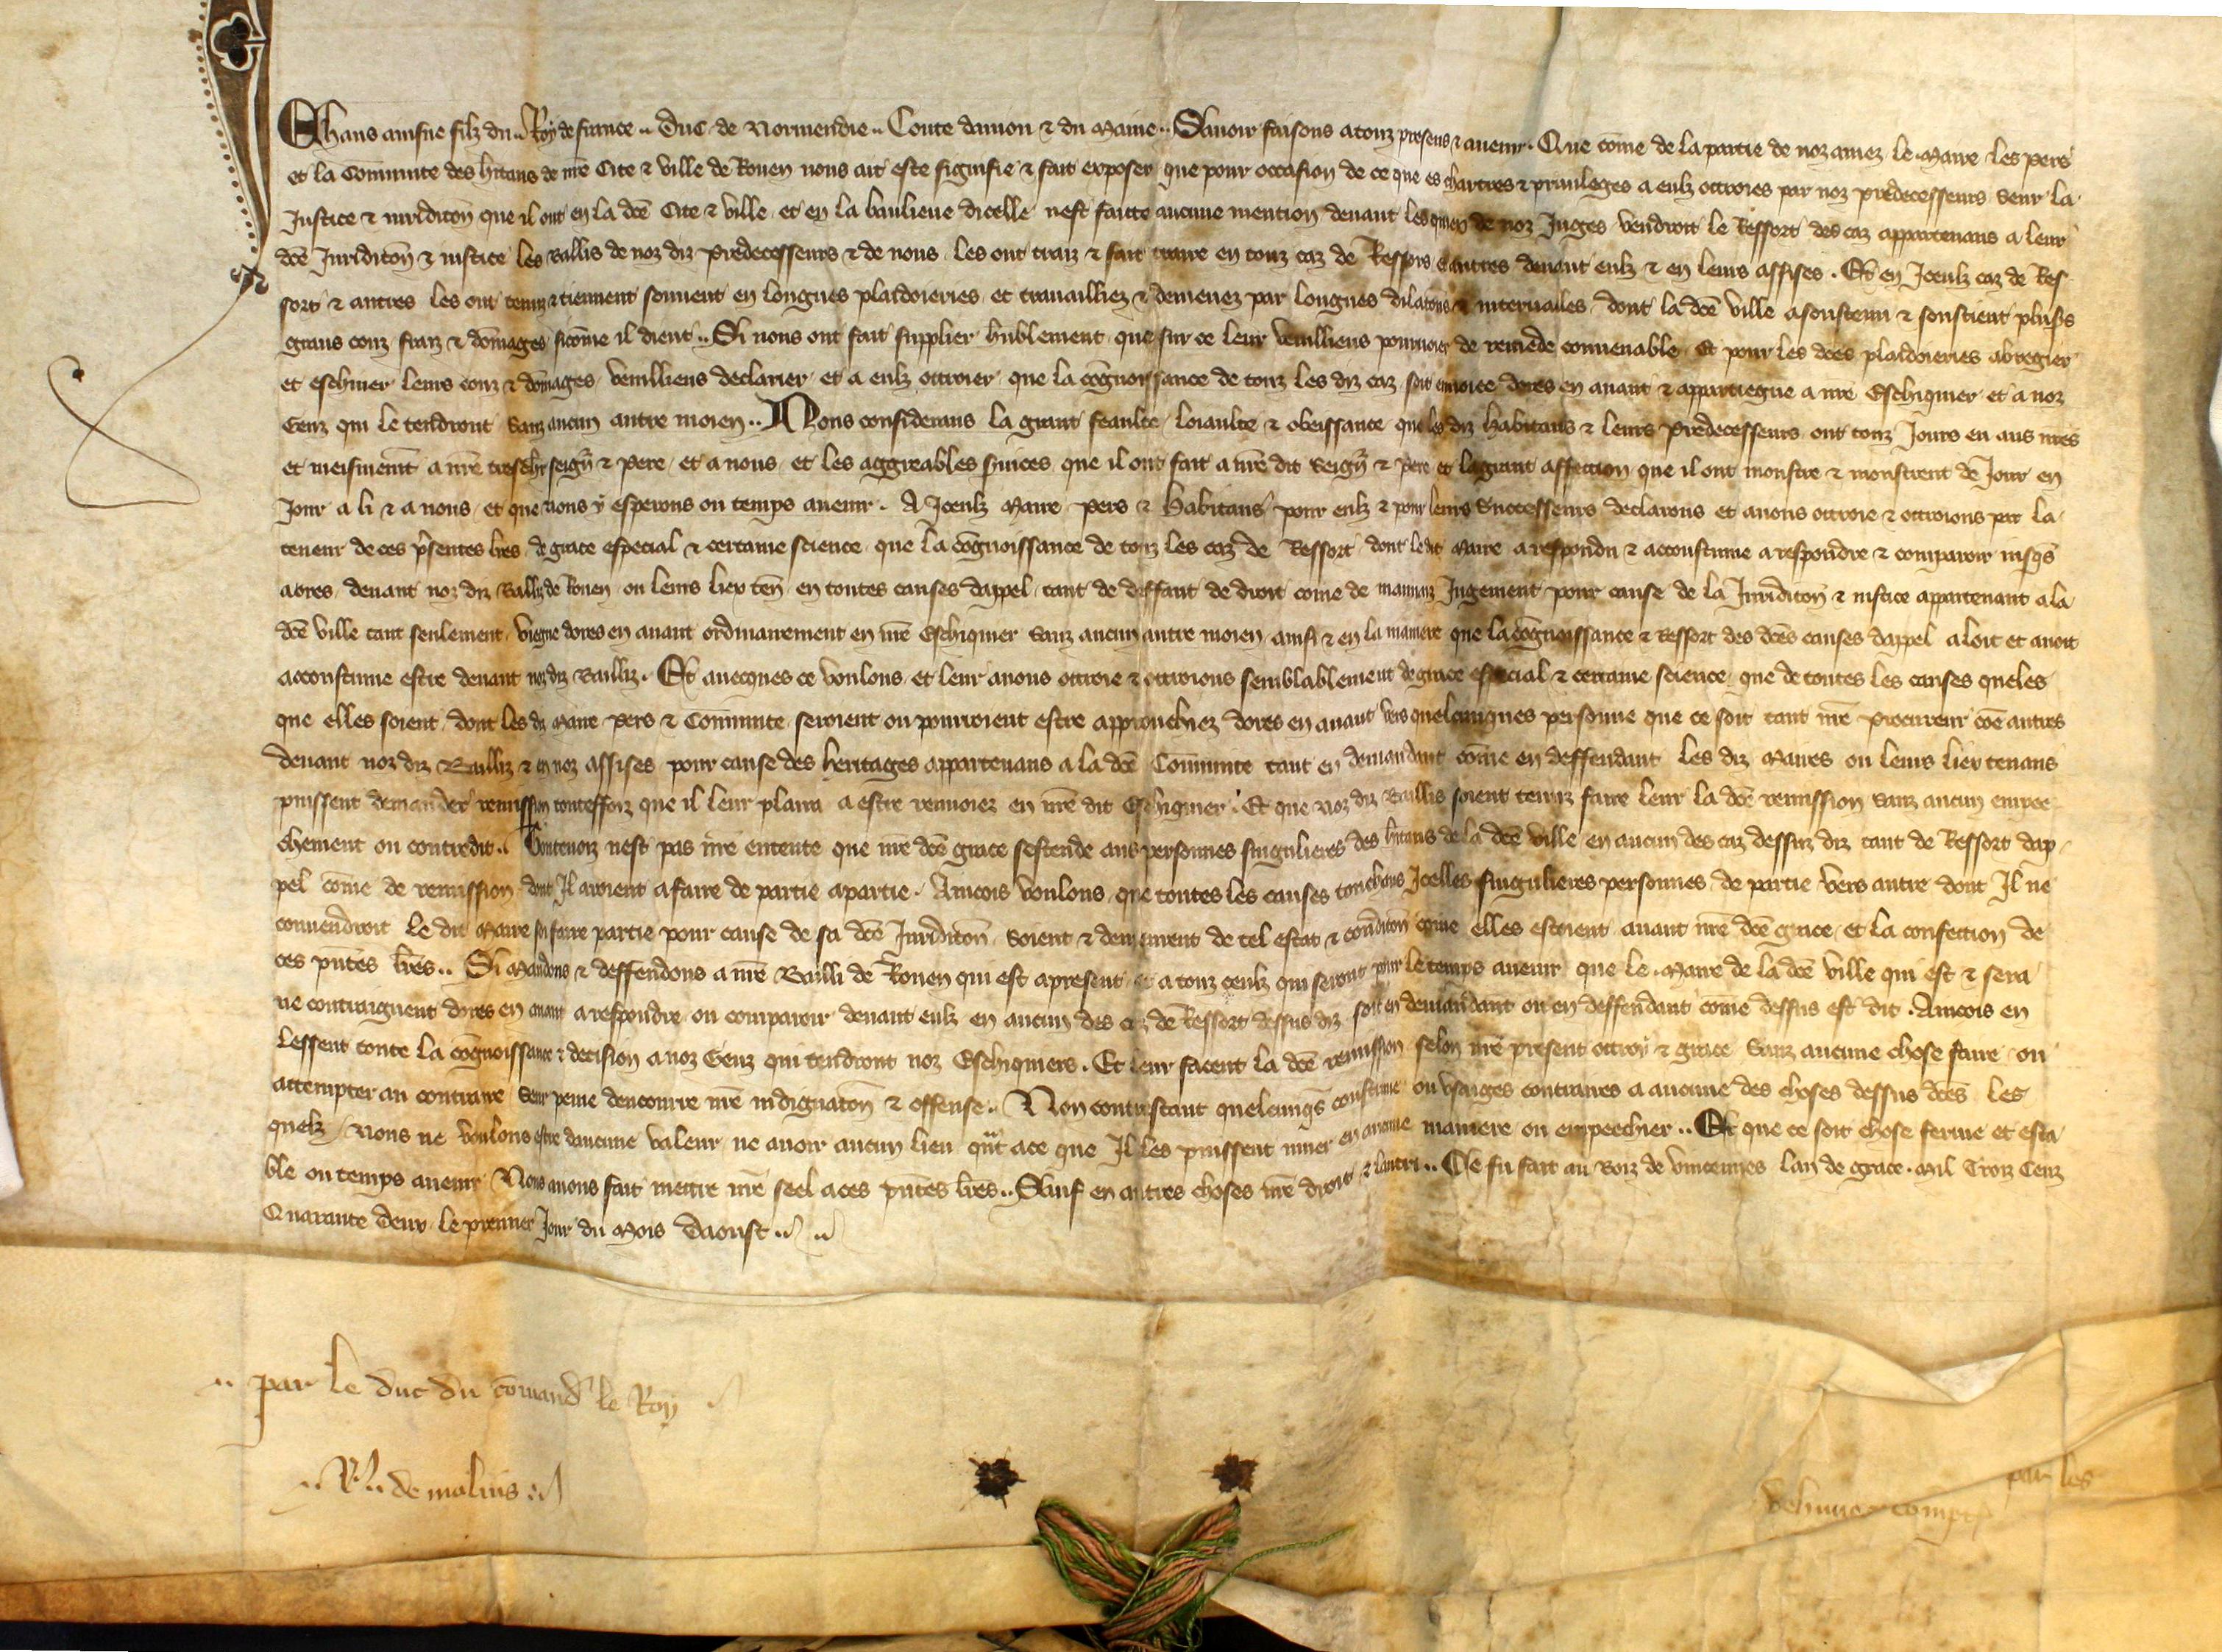 Jehans ainsne filz du Roy de france .. Duc de Normendie .. Conte daniou & du Maine .. Sauoir faisons a touz presens & auenir . Que cōme de la partie de noz amez le Maire les pers
et la Cōmunite des hitans de nr̄e Cite & ville de Rouen nous ait este signifie & fait exposer que pour occasion de ce que es chartres & priuileges a eulz ottroies par noz predecesseurs seur la
Justice & iuridicon̄ que il ont en la dc̄e Cite & ville et en la banlieue dicelle nest faitte aucune mention deuant les quiex de noz Juges vendroit le Ressort des caz appartenans a leur
dc̄e Juridicon̄ & iustice les Baillis de noz diz predecesseurs & de nous les ont traiz & fait traire en touz caz de Ressors & autres deuant eulz & en leurs assises . Et en Jceulz caz de Res
sort & autres les ont tenuz & tiennent souuent en longues plaidoieries et trauailliez & demenez par longues dilacions & interualles dont la dc̄e ville a soustenu & soustient plus̄s
grans couz fraiz & dōmages sicōme il dient .. Si nous ont fait supplier hūblement que sur ce leur veuilliens pourueoir de remede conuenable Et pour les dc̄es plaidoieries abregier
et eschiuer leurs couz & dōmages veuilliens declarier et a eulz ottroier que la cōgnoissance de touz les diz caz soit enuoiee dores en auant & appartiegne a nr̄e Eschiquier et a noz
Genz qui le tendront Sanz aucun autre moien .. Nous considerans la grant feaulte loiaulte & obeissance que les diz habitans & leurs predecesseurs ont touz Jours eu aus nr̄es
et meismemēt a nr̄e treschr seign̄ & pere et a nous et les aggreables s̄uices que il ont fait a nr̄e dit Seign̄ & pere et la grant affection que il ont monstre & monstrent de Jour en
Jour a li & a nous et que nous y esperons ou temps auenir . A Jceulz Maire pers & habitans pour eulz & pour leurs Successeurs declarons et auons ottroie & ottroions par la
teneur de ces p̄sentes lr̄es de grace especial & certaine science que la cōgnoissance de touz les caz de Ressort dont le dit Maire a respondu & acoustume a respondre & comparoir iusq̄s
a ores deuant noz diz Bailliz de Rouen ou leurs liex ten̄ en toutes causes dappel tant de deffaut de droit come de mauuaiz Jugement pour cause de la Juridicon̄ & iustice appartenant a la
dc̄e ville tant seulement viegne dores en auant ordinairement en nr̄e Eschiquier Sanz aucun autre moien ainsi & en la maniere que la cōgnoissance & ressort des dc̄es causes dappel aloit et auoit
acoustume estre deuant noz diz Bailliz . Et auecques ce voulons et leur auons ottroie & ottroions semblablement de grace especial & certaine science que de toutes les causes queles
que elles soient dont les diz Maire pers & Cōmunite seroient ou pourroient estre approuchiez dores en auant vers quelcunques personne que ce soit tant nr̄e procureur cōe autres
deuant noz diz Bailliz & en noz assises pour cause des heritages appartenans a la dc̄e Cōmunite tant en demandant cōme en deffendant les diz Maires ou leurs liex tenans
puissent demander remission touteffoiz que il leur plaira a estre renuoiez en nr̄e dit Eschiquier . Et que noz diz Baillis soient tenuz faire leur la dc̄e remission Sanz aucun empee
chement ou contredit . Toutevoiz nest pas nr̄e entente que nr̄e dc̄e grace sestende aus personnes singulieres des hitans de la dc̄e ville en aucun des caz dessuz diz tant de Ressort dap
pel cōme de remission dont Il auroient a faire de partie a partie . Aincois voulons que toutes les causes touchans Jcelles singulieres personnes de partie vers autre dont Il ne
conuendroit le dit Maire soi faire partie pour cause de sa dc̄e Juridicon̄ soient & demeurent de tel estat & condicon̄ come elles estoient auant nr̄e dc̄e grace et la confection de
ces pn̄tes lr̄es .. Si mandons & deffendons a nr̄e Bailli de Rouen qui est a present & a touz ceulz qui seront pour le temps auenir que le Maire de la dc̄e ville qui est & sera
ne contraignent dores en auant a respondre ou comparoir deuant eulz en aucun des caz de Ressort dessus diz soit en demandant ou en deffendant come dessus est dit . Aincois en
lessent toute la cōgnoissance & decision a noz Genz qui tendront noz Eschiquiers . Et leur facent la dc̄e remission selon nr̄e present ottroy & grace Sanz aucune chose faire ou
attempter au contraire seur peine dencourre nr̄e indignacon̄ & offense .. Non contrestant quelcunq̄s coustume ou vsaiges contraires a aucune des choses dessus dc̄es les
quelz Nous ne voulons estre daucune valeur ne auoir aucun lieu qn̄t a ce que Il les puissent nuire en aucune maniere ou empeechier .. Et que ce soit chose ferme et esta
ble ou temps auenir Nous auons fait mettre nr̄e seel a ces pn̄tes lr̄es .. Sauf en autres choses nr̄e droit & lautri .. Ce fu fait au Boiz de vincennes lan de grace . Mil Troiz Cenz
Quarante deux le premier Jour du Mois Daoust ..
.. par le duc du cōmand le Roy
.. de molins
par les